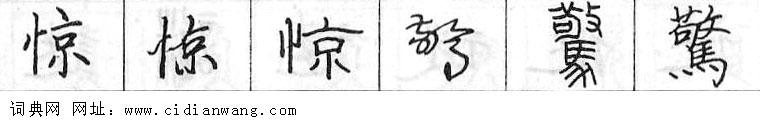 惊 惊 惊 驚 驚 驚
词典网 网址：www.cidianwang.com